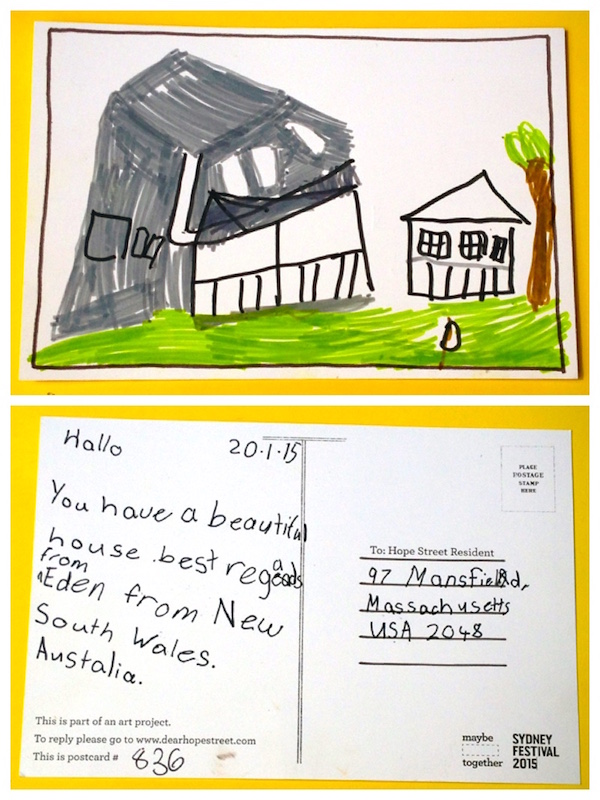 Hallo
20.1.15
You have a beautiful
house .best regards
from
Eden from New
South Wales.
Austalia.
This is part of an art project.
To reply please go to www.dearhopestreet.com
This is postcard # 836
PLACE
POSTAGE
STAMP
HERE
To: Hope Street Resident
97 Mansfield,
Massachusetts
USA 2048
maybe
together
SYDNEY
FESTIVAL
2015